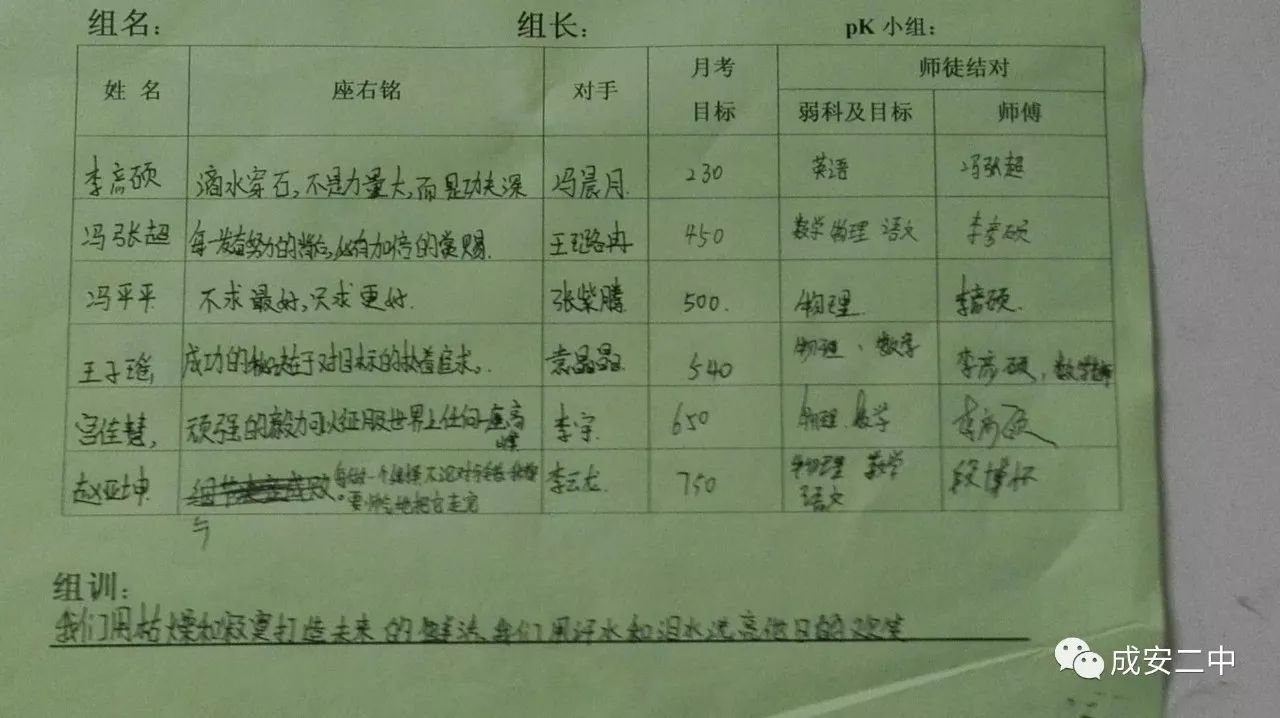 组名： 组长： pK 小组：
姓 名 座右铭 对手 月考目标 师徒结对
弱科及目标 师傅
李彦硕 滴水穿石，不是力量大，而是功夫深 冯晨月 230 英语 冯张超
冯张超 每一发奋努力的背后，必有加倍的赏赐. 王 路冉 450 数学 物理 语文 李彦硕
冯平平 不求最好，只求更好. 张紫腾 500. 物理. 李彦硕.
王子瑶 成功的秘诀在于对目标的执着追求。 袁晶晶 540 物理、数学 李彦硕，数学
宫佳慧， 顽强的毅力可以征服世界上任何一座高峰 李宁 650 物理 数学 李彦硕
赵亚坤 每做一个选择不论对与错 我都要 地把它走完 李云龙 750 物理 数学 语文 段
组训：
我们用枯燥和寂寞打造未来的 法，我们用汗水和泪水 日的欢笑
成安二中